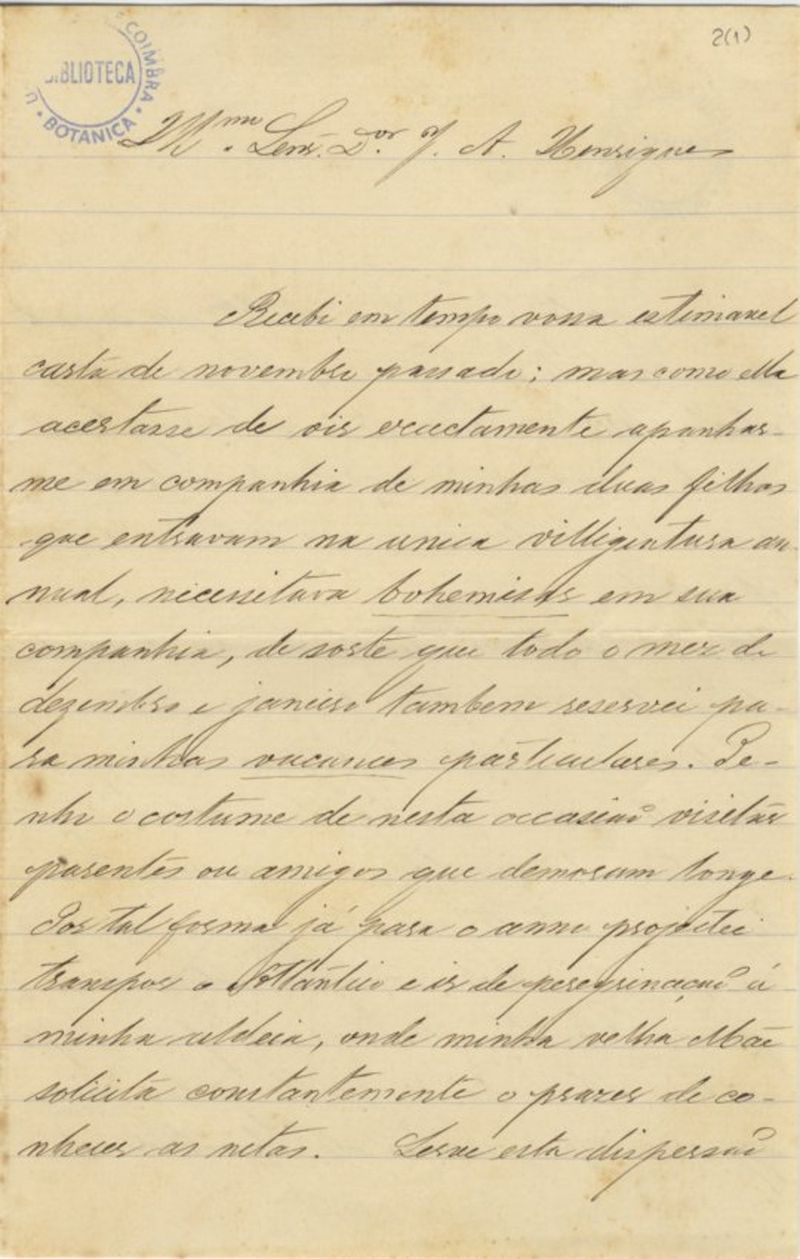 2(1)
COIMBRA
BIBLIOTECA
BOTANICA
Illmo. Senr. Dor. J. A. Henriques
Recebi em tempo vossa estimavel
carta de novembro passado; mas como ella
acertasse de vir exactamente apanhar-
me em companhia de minhas duas filhas
que entravam na unica villigiatura an-
nual, necessitava bohemisar em sua
companhia, de sorte que todo o mez de
dezembro e janeiro tambem reservei pa-
ra minhas vacances particulares. Te-
nho o costume de nesta occasiaõ visitar
parentes ou amigos que demoram longe.
Por tal forma já para o anno projectei
transpor o Atlântico e ir de peregrinaçaõ á
minha aldeia, onde minha velha Mãe
solicita constantemente o prazer de co-
nhecer as netas. Serve esta dispersaõ